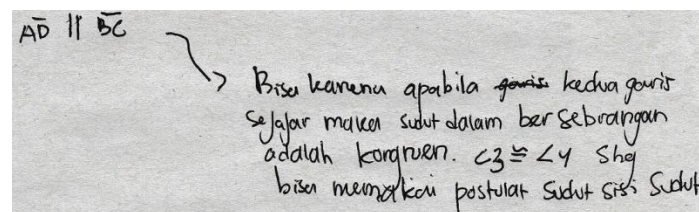 AD || BC
Bisa karena apabila garis kedua garis
sejajar maka sudut dalam bersebrangan
adalah kongruen. <3 ≅ ∠4 shg
bisa memakai postulat sudut sisi sudut